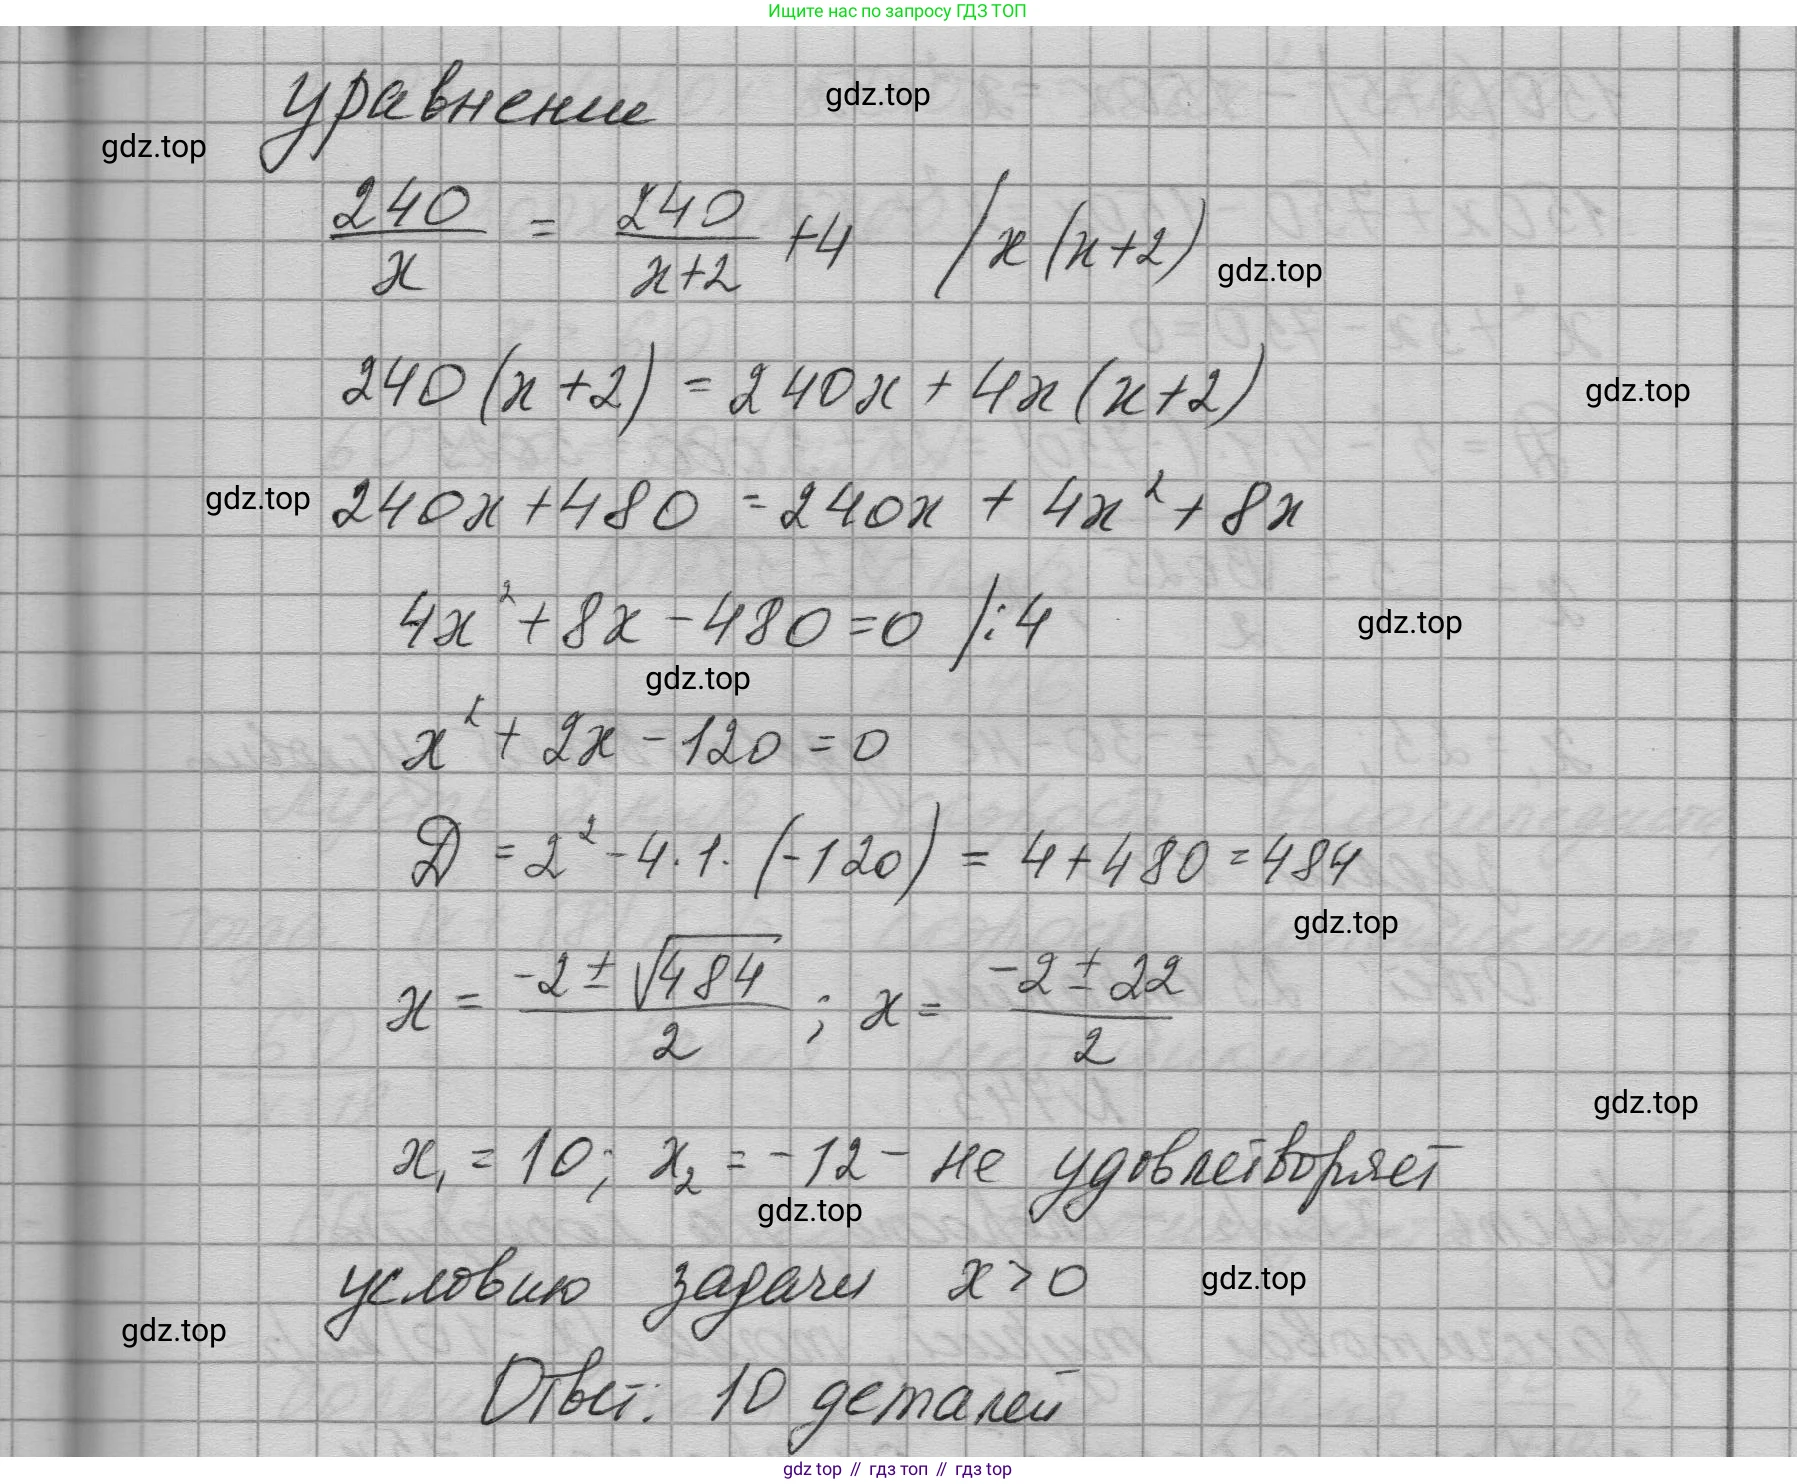 Ищите нас по запросу ГДЗ ТОП
уравнение
gdz.top
gdz.top
240/x = 240/(x+2) + 4 / x(x+2)
gdz.top
240(x+2) = 240x + 4x(x+2)
gdz.top
gdz.top
240x + 480 = 240x + 4x² + 8x
4x² + 8x - 480 = 0 /:4
gdz.top
gdz.top
x² + 2x - 120 = 0
D = 2² - 4·1·(-120) = 4 + 480 = 484
gdz.top
x = (-2 ± √484)/2 ; x = (-2 ± 22)/2
gdz.top
x₁ = 10; x₂ = -12 - не удовлетворяет
gdz.top
условию задачи x > 0
gdz.top
gdz.top
Ответ: 10 деталей
gdz top // гдз топ // гдз top